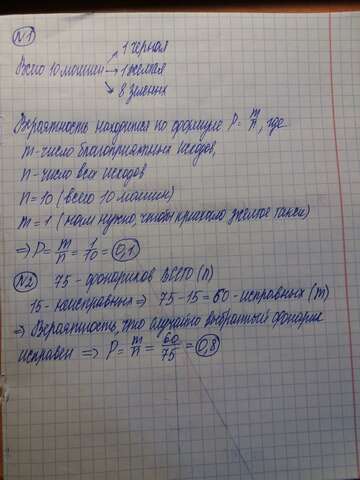 №1
1 черная
Всего 10 машин → 1 желтая
8 зеленых
Вероятность находится по формуле P = m/n, где
m - число благоприятных исходов,
n - число всех исходов
n = 10 (всего 10 машин)
m = 1 (нам нужно, чтобы приехало жёлтое такси)
⇒ P = m/n = 1/10 = 0,1
№2 75 - фонариков ВСЕГО (n)
15 - неисправных ⇒ 75 - 15 = 60 - исправных (m)
⇒ Вероятность, что случайно выбранный фонарик
исправен ⇒ P = m/n = 60/75 = 0,8